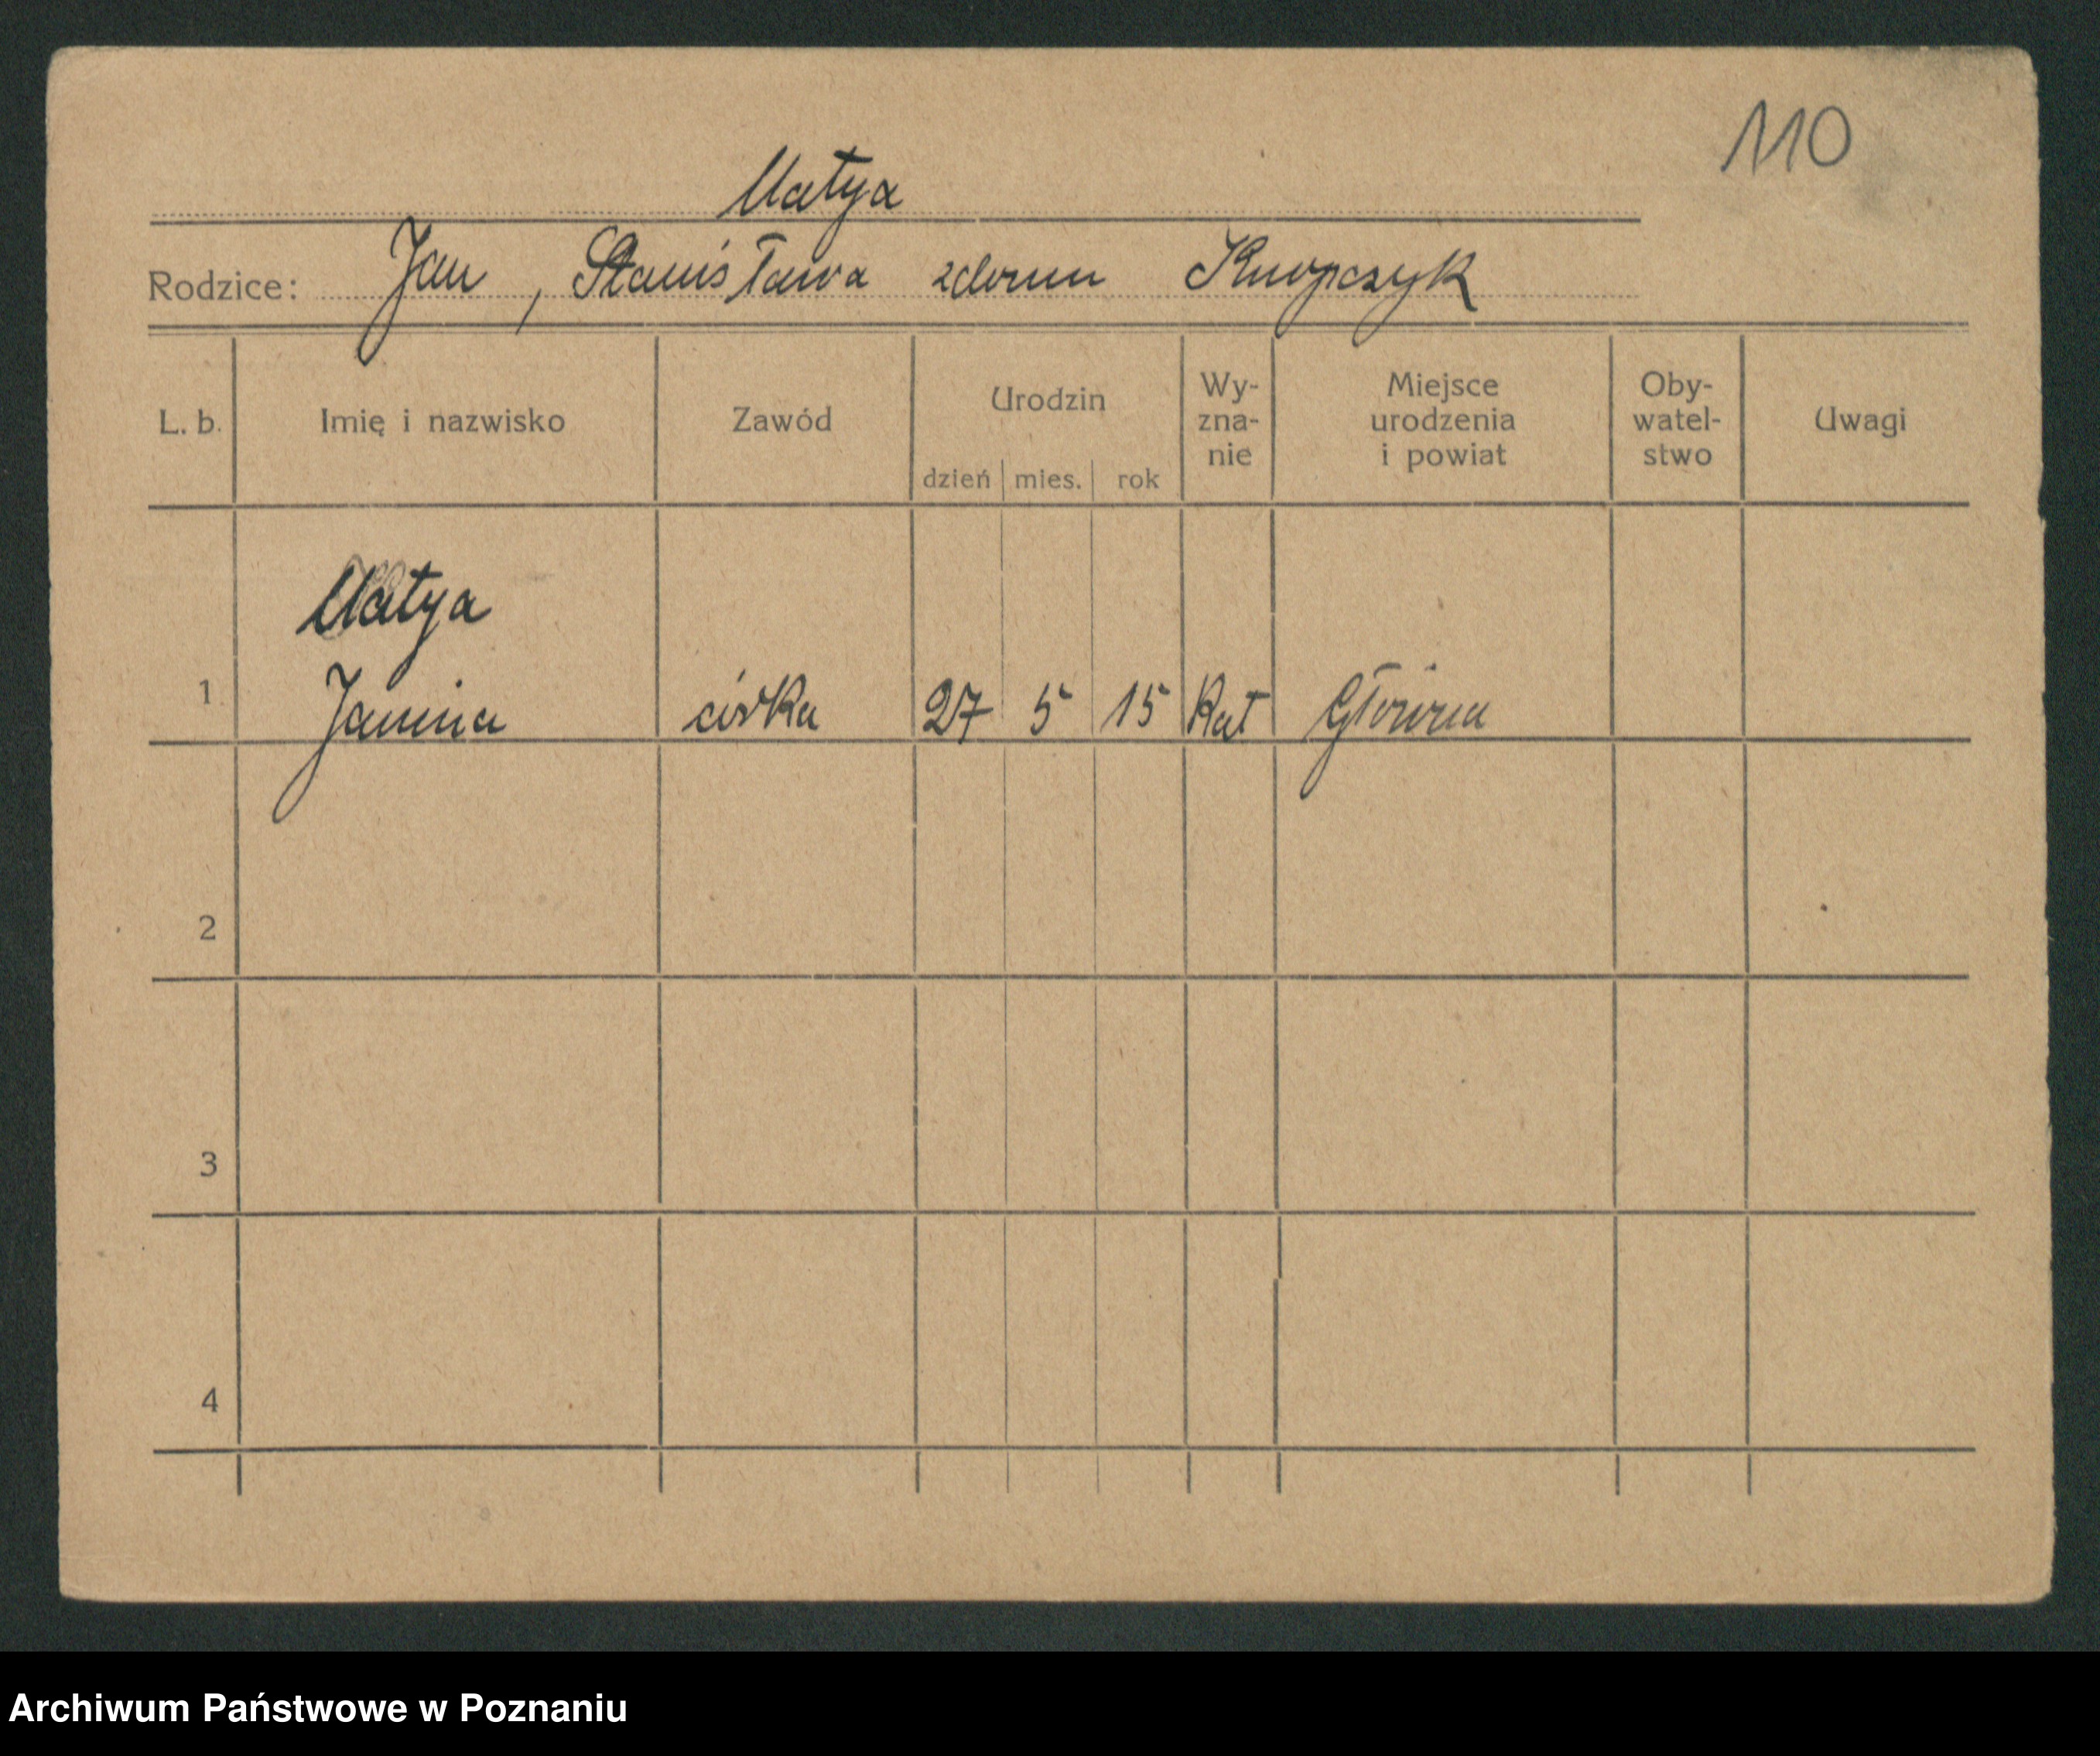 110
Matya
Rodzice: Jan, Stanisława zdomu Knopczyk
L. b.
Imię i nazwisko
Zawód
Urodzin
dzień mies. rok
Wy-
zna-
nie
Miejsce
urodzenia
i powiat
Oby-
watel-
stwo
Uwagi
Matya
1 Janina córka 27 5 15 Kat Główna
2
3
4
Archiwum Państwowe w Poznaniu